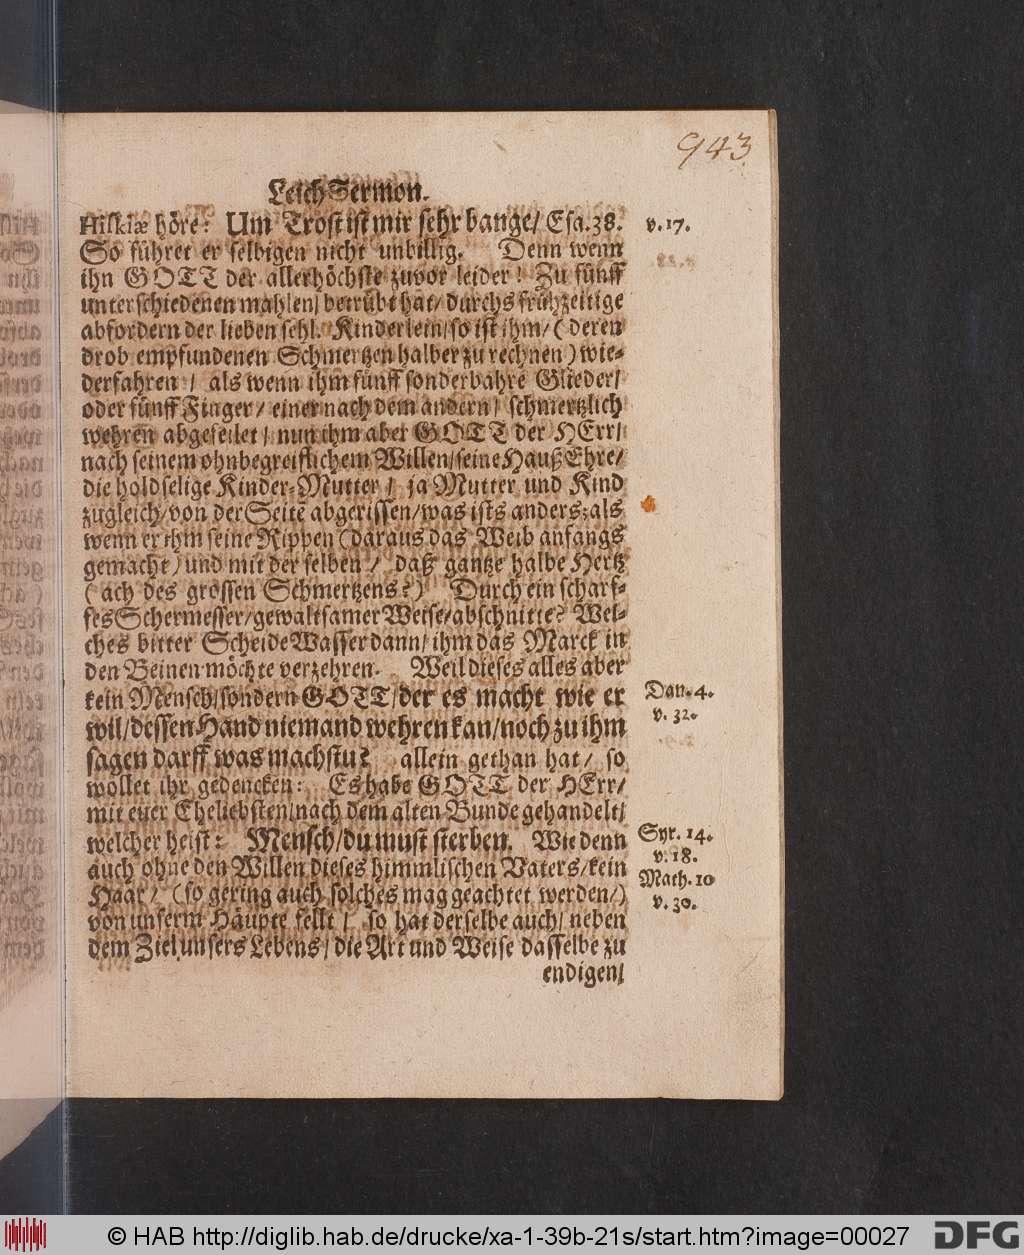 943
LeichSermon.
Hiskiæ höre: Um Trost ist mir sehr bange/ Esa.38. v.17.
So führet er selbigen nicht unbillig. Denn wenn
ihn GOTT der allerhöchste zuvor leider! Zu fünff
unterschiedenen mahlen/ betrübt hat/ durchs frühzeitige
abfordern der lieben sehl. Kinderlein/ so ist ihm/ (deren
drob empfundenen Schmertzen halber zu rechnen) wie-
derfahren/ als wenn ihm fünff sonderbahre Glieder/
oder fünff Finger/ einer nach dem andern/ schmertzlich
wehren abgefeilet/ nun ihm aber GOTT der HErr/
nach seinem ohnbegreifflichem Willen/ seine HaußEhre/
die holdselige Kinder-Mutter/ ja Mutter und Kind
zugleich/ von der Seitē abgerissen/ was ists anders; als
wenn er ihm seine Rippen (daraus das Weib anfangs
gemacht) und mit derselben/ daß gantze halbe Hertz
(ach des grossen Schmertzens?) Durch ein scharf-
fes Schermesser/ gewaltsamer Weise/ abschnitte? Wel-
ches bitter ScheideWasser dann/ ihm das Marck in
den Beinen möchte verzehren. Weil dieses alles aber
kein Mensch/ sondern GOTT/ der es macht wie er
wil/ dessen Hand niemand wehren kan/ noch zu ihm
sagen darff was machstu? allein gethan hat/ so
Dan.4.
v. 32.
wollet ihr gedencken: Es habe GOTT der HErr/
mit euer Eheliebsten/ nach dem alten Bunde gehandelt/
welcher heist: Mensch/ du must sterben. Wie denn
Syr. 14.
v. 18.
auch ohne den Willen dieses himmlischen Vaters/ kein
Haar/ (so gering auch solches mag geachtet werden/)
Math. 10
v. 30.
von unserm Häupte fellt/ so hat derselbe auch/ neben
dem Ziel unsers Lebens/ die Art und Weise dasselbe zu
endigen/
© HAB http://diglib.hab.de/drucke/xa-1-39b-21s/start.htm?image=00027
DFG